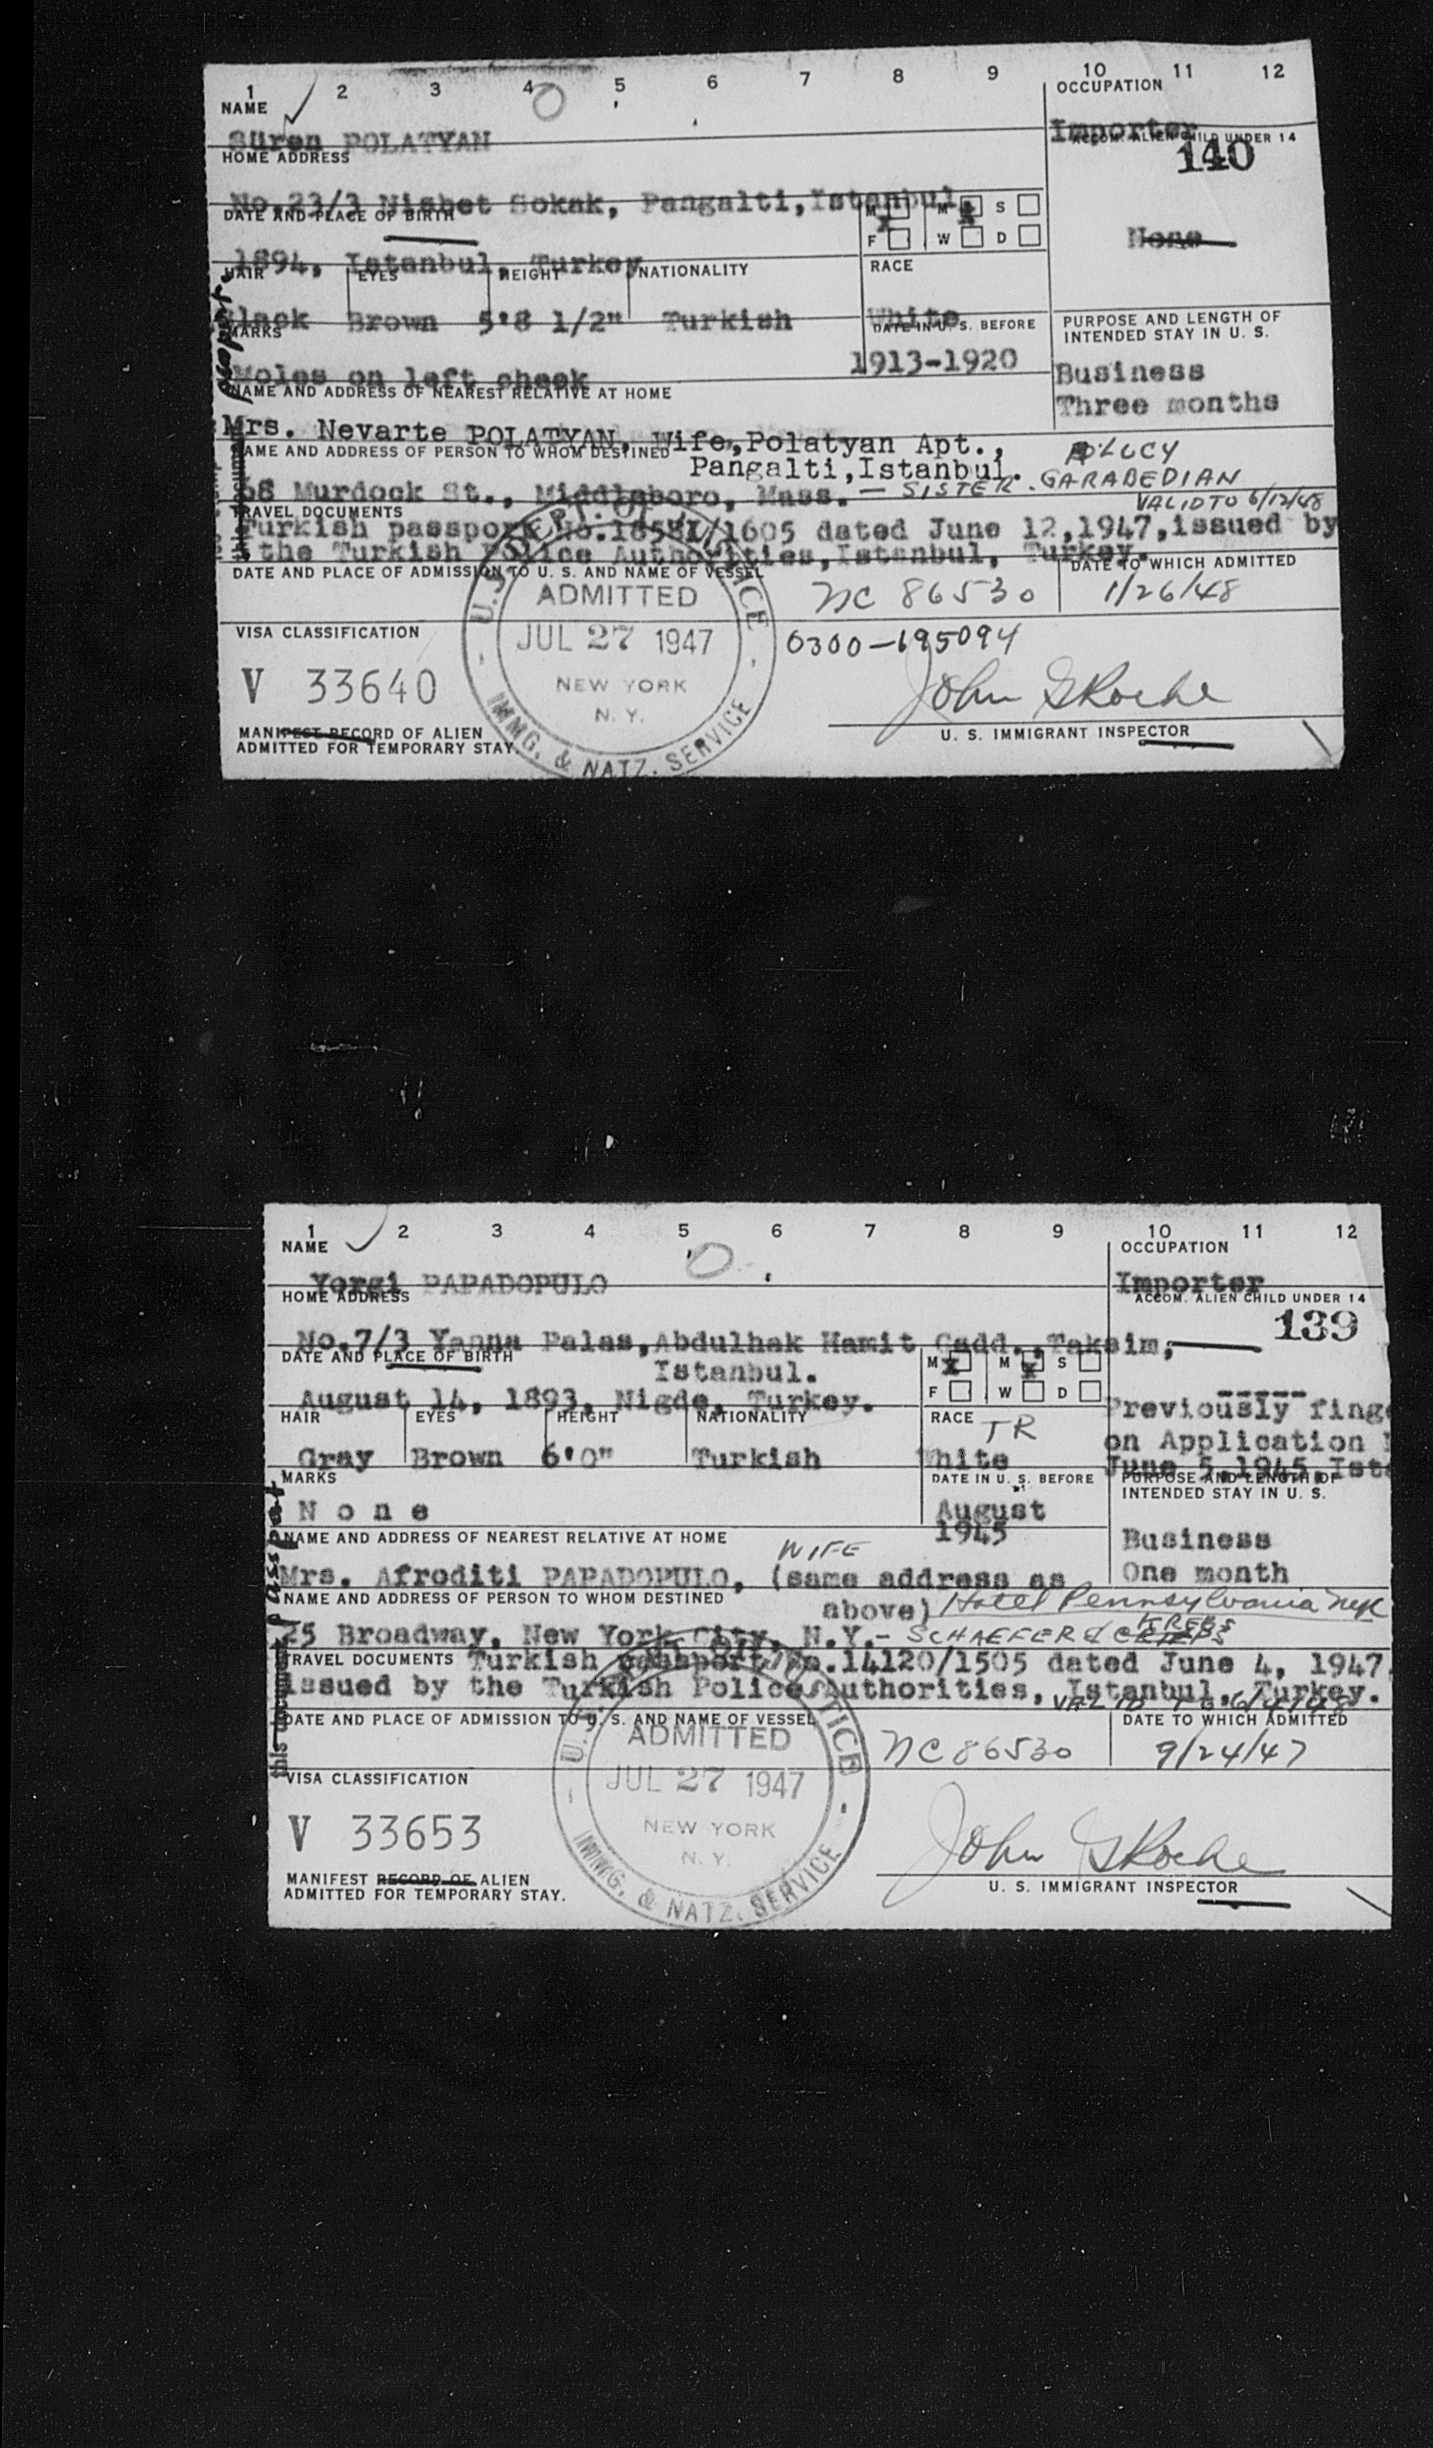 1 2 3 4 5 6 7 8 9 10 11 12
NAME
OCCUPATION
Süren POLATYAN
Importer
HOME ADDRESS
ACCOM. ALIEN CHILD UNDER 14
140
No.23/3 Nisbet Sokak, Pangalti, Istanbul.
DATE AND PLACE OF BIRTH
M x M x S
F W D
None
1894, Istanbul, Turkey
HAIR EYES HEIGHT NATIONALITY RACE
Black Brown 5'8 1/2" Turkish White
MARKS
DATE IN U. S. BEFORE
PURPOSE AND LENGTH OF
INTENDED STAY IN U. S.
1913-1920
Moles on left cheek
Business
Three months
NAME AND ADDRESS OF NEAREST RELATIVE AT HOME
Mrs. Nevarte POLATYAN, Wife, Polatyan Apt.,
Pangalti, Istanbul.
NAME AND ADDRESS OF PERSON TO WHOM DESTINED
LUCY
68 Murdock St., Middleboro, Mass. — SISTER. GARABEDIAN
VALID TO 6/12/48
TRAVEL DOCUMENTS
Turkish passport No.18581/1605 dated June 12,1947, issued by
the Turkish Police Authorities, Istanbul, Turkey.
DATE AND PLACE OF ADMISSION TO U. S. AND NAME OF VESSEL
DATE TO WHICH ADMITTED
NC 86530
1/26/48
U.S. DEPT. OF JUSTICE
ADMITTED
JUL 27 1947
NEW YORK
N. Y.
IMMG. & NATZ. SERVICE
VISA CLASSIFICATION
0300-195094
V 33640
John G Roche
MANIFEST RECORD OF ALIEN
ADMITTED FOR TEMPORARY STAY.
U. S. IMMIGRANT INSPECTOR
passport
1 2 3 4 5 6 7 8 9 10 11 12
NAME
OCCUPATION
Yorgi PAPADOPULO
Importer
HOME ADDRESS
ACCOM. ALIEN CHILD UNDER 14
139
No.7/3 Yanna Palas, Abdulhak Hamit Cadd., Taksim,
Istanbul.
DATE AND PLACE OF BIRTH
M x M x S
F W D
August 14, 1893, Nigde, Turkey.
Previously finge
on Application
June 5, 1945, Ist
HAIR EYES HEIGHT NATIONALITY RACE TR
Gray Brown 6'0" Turkish White
MARKS
DATE IN U. S. BEFORE
PURPOSE AND LENGTH OF
INTENDED STAY IN U. S.
None
August
1945
Business
One month
NAME AND ADDRESS OF NEAREST RELATIVE AT HOME
WIFE
Mrs. Afroditi PAPADOPULO, (same address as
above)
NAME AND ADDRESS OF PERSON TO WHOM DESTINED
Hotel Pennsylvania NYC
25 Broadway, New York City, N.Y. - SCHAEFER & KREBS
TRAVEL DOCUMENTS Turkish passport No.14120/1505 dated June 4, 1947,
issued by the Turkish Police Authorities, Istanbul, Turkey.
VALID TO 6/4/48
DATE AND PLACE OF ADMISSION TO U. S. AND NAME OF VESSEL
DATE TO WHICH ADMITTED
NC 86530
9/24/47
ADMITTED
JUL 27 1947
NEW YORK
N. Y.
IMMG. & NATZ. SERVICE
VISA CLASSIFICATION
V 33653
John G Roche
MANIFEST RECORD OF ALIEN
ADMITTED FOR TEMPORARY STAY.
U. S. IMMIGRANT INSPECTOR
this document passport